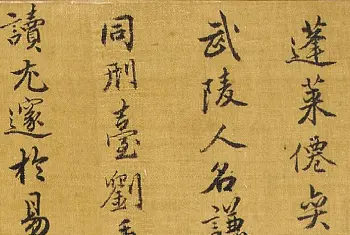 蓬萊僊奕
武陵人名謙
同刑臺劉
讀尤邃於易